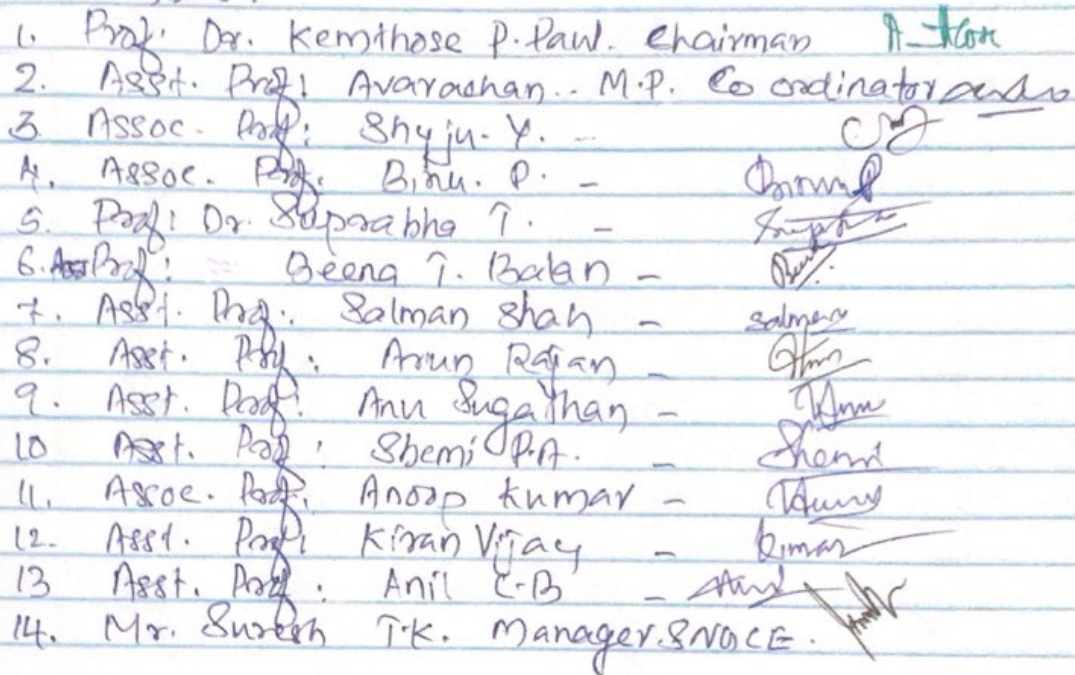 1. Prof: Dr. Kemthose P. Paul. Chairman
2. Asst. Prof: Avarachan.. M.P. Co ordinator
3 Assoc. Prof: Shyju. Y. -
4. Assoc. Prof: Binu. P. -
5. Prof: Dr. Suprabha T. -
6. Prof: Beena T. Balan -
7. Asst. Prof: Salman Shah - Salman
8. Asst. Prof: Arun Rajan -
9. Asst. Prof: Anu Sugathan - Anu
10 Asst. Prof: Shemi P.A. - Shemi
11. Assoc. Prof: Anoop kumar -
12. Asst. Prof: Kiran Vijay -
13 Asst. Prof: Anil C.B -
14. Mr. Suresh T.K. Manager. SNGCE.